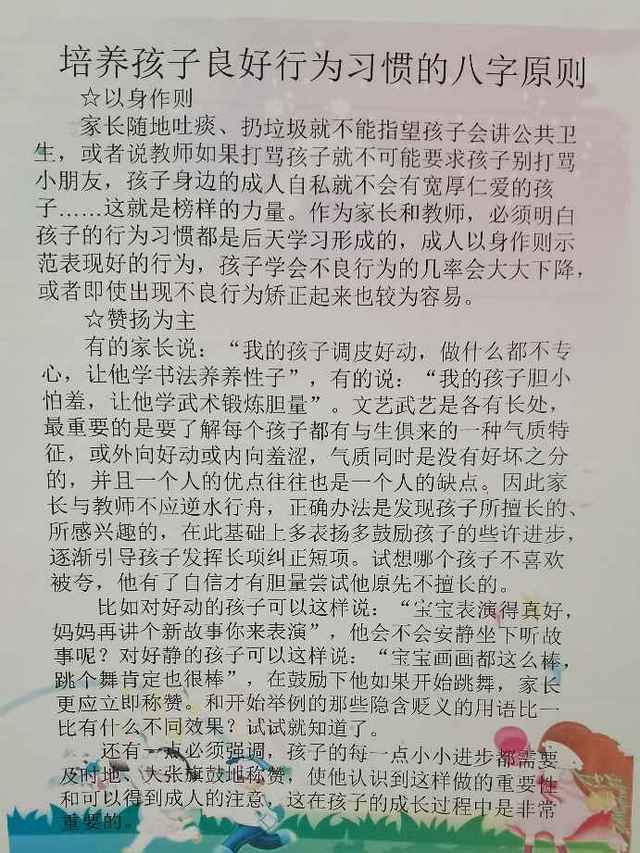 培养孩子良好行为习惯的八字原则
☆以身作则
家长随地吐痰、扔垃圾就不能指望孩子会讲公共卫
生，或者说教师如果打骂孩子就不可能要求孩子别打骂
小朋友，孩子身边的成人自私就不会有宽厚仁爱的孩
子……这就是榜样的力量。作为家长和教师，必须明白
孩子的行为习惯都是后天学习形成的，成人以身作则示
范表现好的行为，孩子学会不良行为的几率会大大下降，
或者即使出现不良行为矫正起来也较为容易。
☆赞扬为主
有的家长说：“我的孩子调皮好动，做什么都不专
心，让他学书法养养性子”，有的说：“我的孩子胆小
怕羞，让他学武术锻炼胆量”。文艺武艺是各有长处，
最重要的是要了解每个孩子都有与生俱来的一种气质特
征，或外向好动或内向羞涩，气质同时是没有好坏之分
的，并且一个人的优点往往也是一个人的缺点。因此家
长与教师不应逆水行舟，正确办法是发现孩子所擅长的、
所感兴趣的，在此基础上多表扬多鼓励孩子的些许进步，
逐渐引导孩子发挥长项纠正短项。试想哪个孩子不喜欢
被夸，他有了自信才有胆量尝试他原先不擅长的。
比如对好动的孩子可以这样说：“宝宝表演得真好，
妈妈再讲个新故事你来表演”，他会不会安静坐下听故
事呢？对好静的孩子可以这样说：“宝宝画画都这么棒，
跳个舞肯定也很棒”，在鼓励下他如果开始跳舞，家长
更应立即称赞。和开始举例的那些隐含贬义的用语比一
比有什么不同效果？试试就知道了。
还有一点必须强调，孩子的每一点小小进步都需要
及时地、大张旗鼓地称赞，使他认识到这样做的重要性
和可以得到成人的注意，这在孩子的成长过程中是非常
重要的。